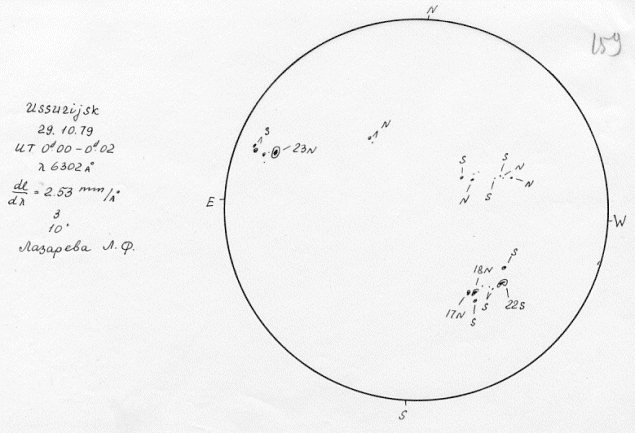 N
159
Ussurijsk
29.10.79
UT 0ᵈ00 - 0ᵈ.02
λ 6302 Aº
dl/dλ = 2.53 mm/Aº
3
10"
Лазарева Л.Ф.
S
23N
N
S
S
N
N
N
S
E
W
S
18N
17N
S
S
22S
S